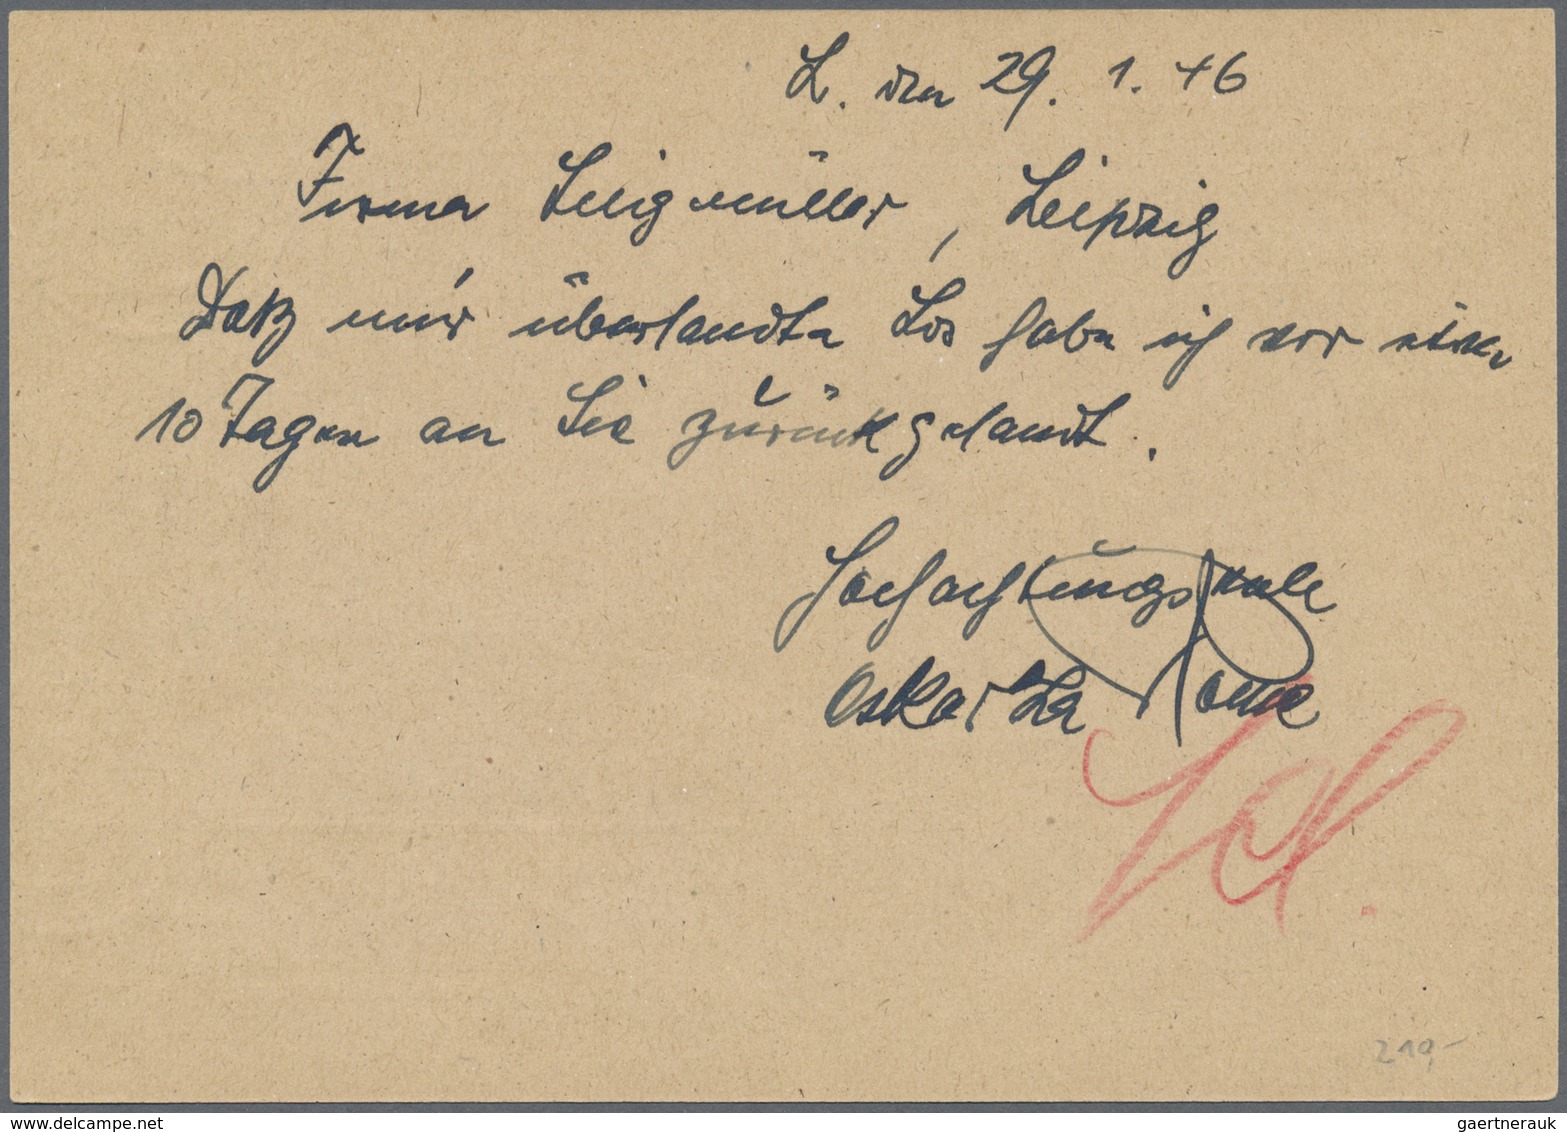 L. den 29. 1. 46
Firma Seligmüller, Leipzig
Daß mir übersandte Los habe ich vor etwa
10 Tagen an Sie zurückgesandt.
Hochachtungsvoll
Oskar La
219,-
www.delcampe.net
gaertnerauk